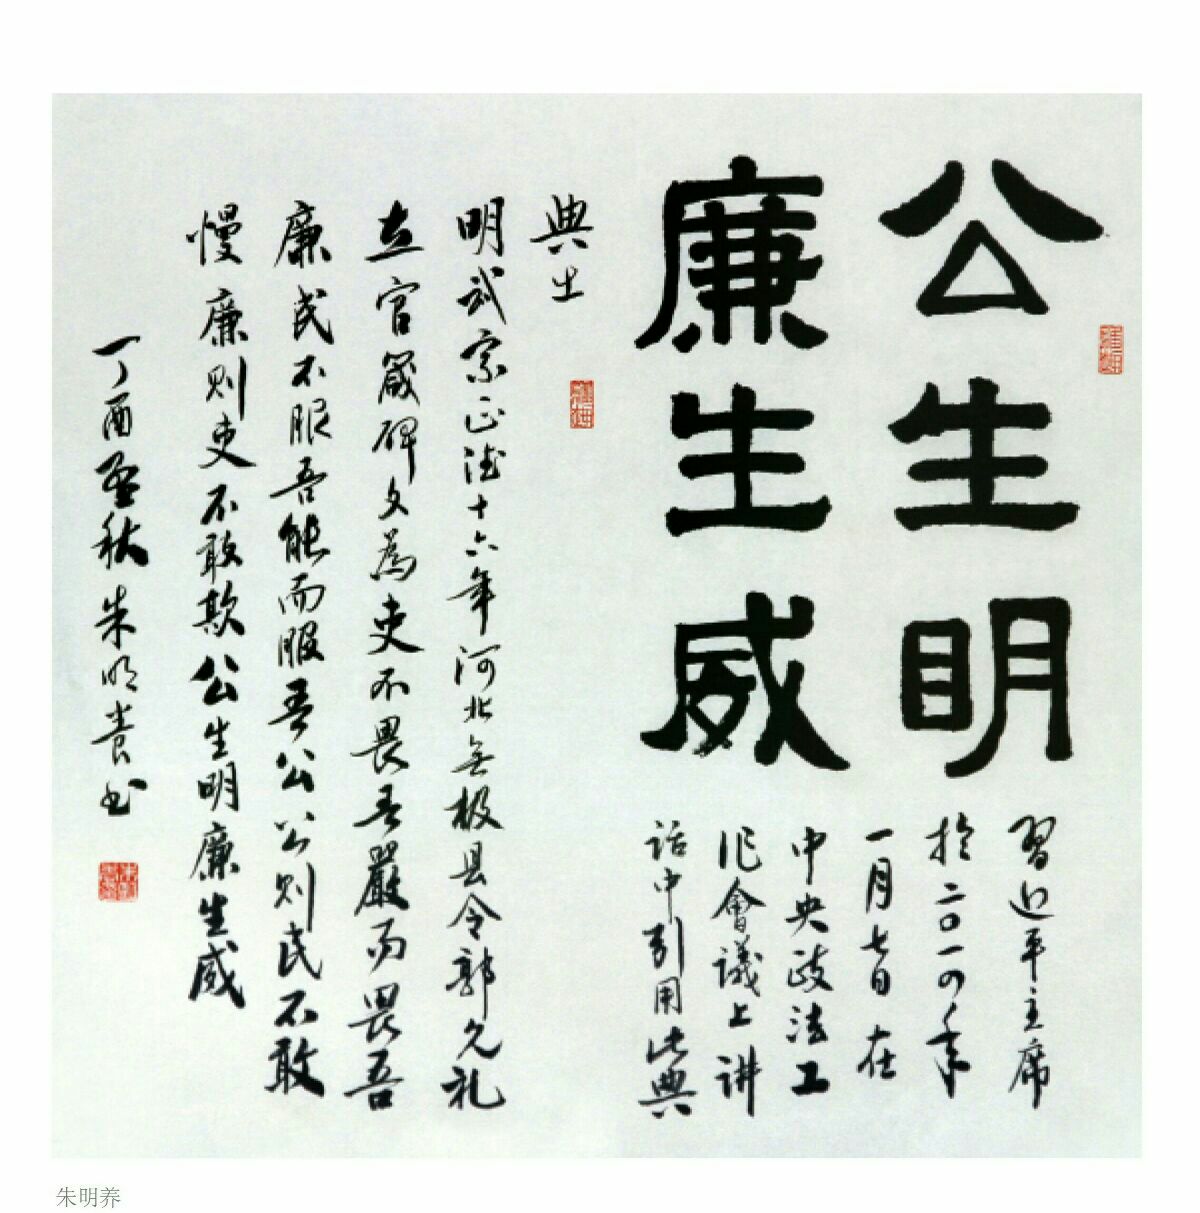 公生明
廉生威
習近平主席
於二〇一四年
一月七日在
中央政法工
作會議上讲
話中引用此典
典出
明武宗正德十六年河北无极县令郭允礼
立官箴碑文為吏不畏吾嚴而畏吾
廉民不服吾能而服吾公公则民不敢
慢廉则吏不敢欺公生明廉生威
丁酉孟秋朱明养书
朱明养